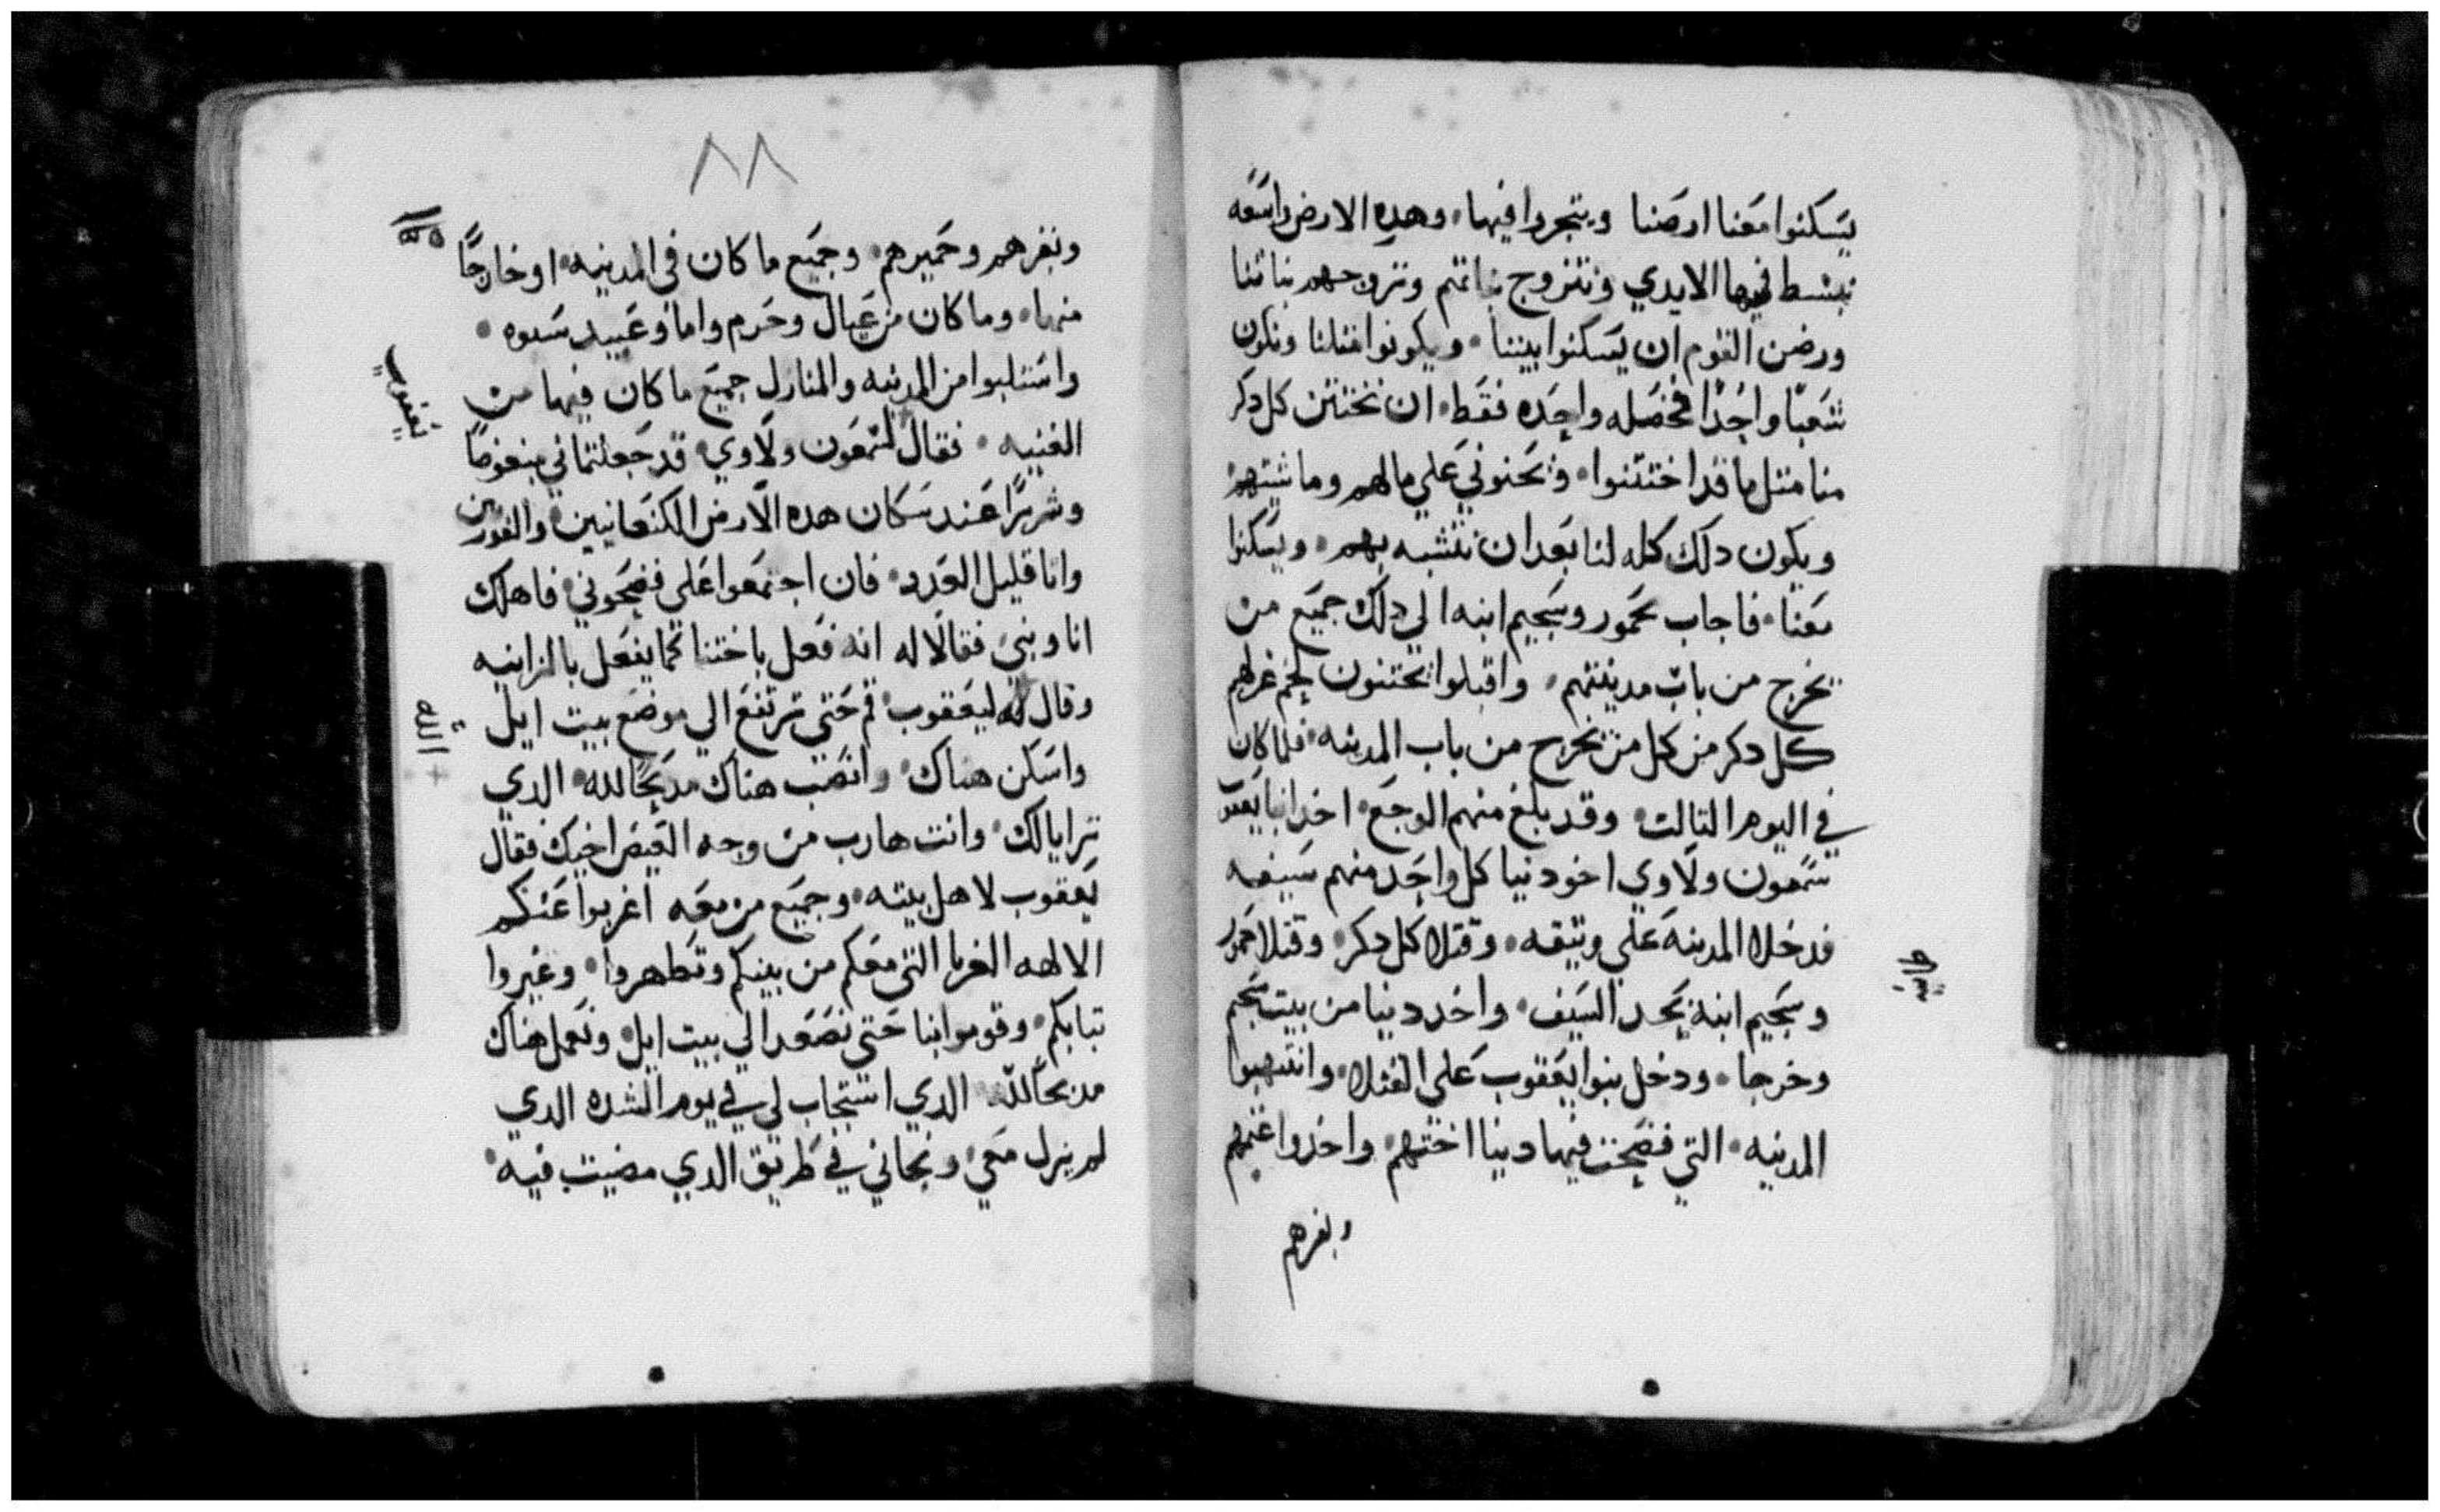 يسكنوا معنا ارضنا ويتجروا فيها وهده الارض واسعه
نبسط فيها الايدي ونتزوج بناتهم ونزوجهم بناتنا
ورضي القوم ان يسكنوا بيننا ويكونوا مثلنا ونكون
شعبًا واحدًا بخصله واحده فقط ان نختتن كل دكر
منا متل ما قد اختتنوا علي مالهم وماشيتهم
ويكون دلك كله لنا بعد ان نتشبه بهم ويسكنوا
معنا فاجاب حمور وسجيم ابنه الي دلك جميع من
يخرج من باب مدينتهم واقبلوا يختنون لحم غرلهم
كل دكر من كل من يخرج من باب المدينه فلما كان
في اليوم التالت وقد بلغ منهم الوجع اخد ابنا يعقوب
شمعون ولاوي اخود نيا كل واحد منهم سيفه
فدخلا المدينه علي وتيقه وقتلا كل دكر وقتلا حمور
وسجيم ابنه بحد السيف واخد دنيا من بيت سجيم
وخرجا ودخل بنوا يعقوب علي القتلا وانتهبوا
المدينه التي فضحت فيها دينا اختهم واخدوا غنمهم
وبقرهم
٨٨
وبقرهم وحميرهم وجميع ما كان في المدينه او خارجًا
منها وما كان من عيال وحرم واما وعبيد سبوه
واستلبوا من المدينه والمنازل جميع ما كان فيها من
يعقوب
الغنيه فقال لشمعون ولاوي قد جعلتماني مبغوضا
وشريرًا عند سكان هده الارض الكنعانيين والفورين
وانا قليل العدد فان اجتمعوا علي فضحوني فاهلك
انا وبني فقالا له انه فعل باختنا كما يفعل بالزانيه
وقال الله ليعقوب قم حتي ترتفع الي موضع بيت ايل
الله
واسكن هناك وانصب هناك مدبحًا لله الدي
ترايا لك وانت هارب من وجه العيص اخيك فقال
يعقوب لاهل بيته وجميع من معه اغربوا عنكم
الالهه الغربا التي معكم من بينكم وتطهروا وغيروا
تيابكم وقوموا بنا حتي نصعد الي بيت ايل ونعمل هناك
مدبحًا لله الدي استجاب لي في يوم الشده الدي
لم يزل معي ونجاني في طريق الدي مضيت فيه